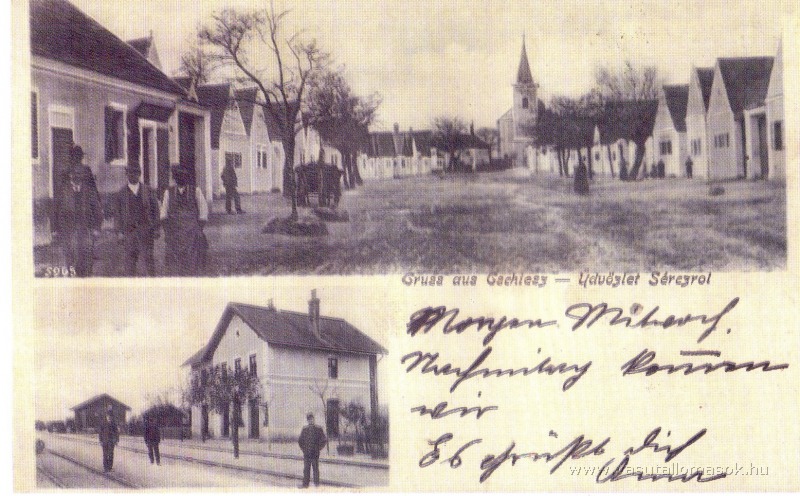 5963
Gruss aus Tschiesz — Üdvözlet Sérczről
Morgen Mittwoch,
Nachmittag kommen
wir
Es grüßt dich
www.vasutallomasok.hu